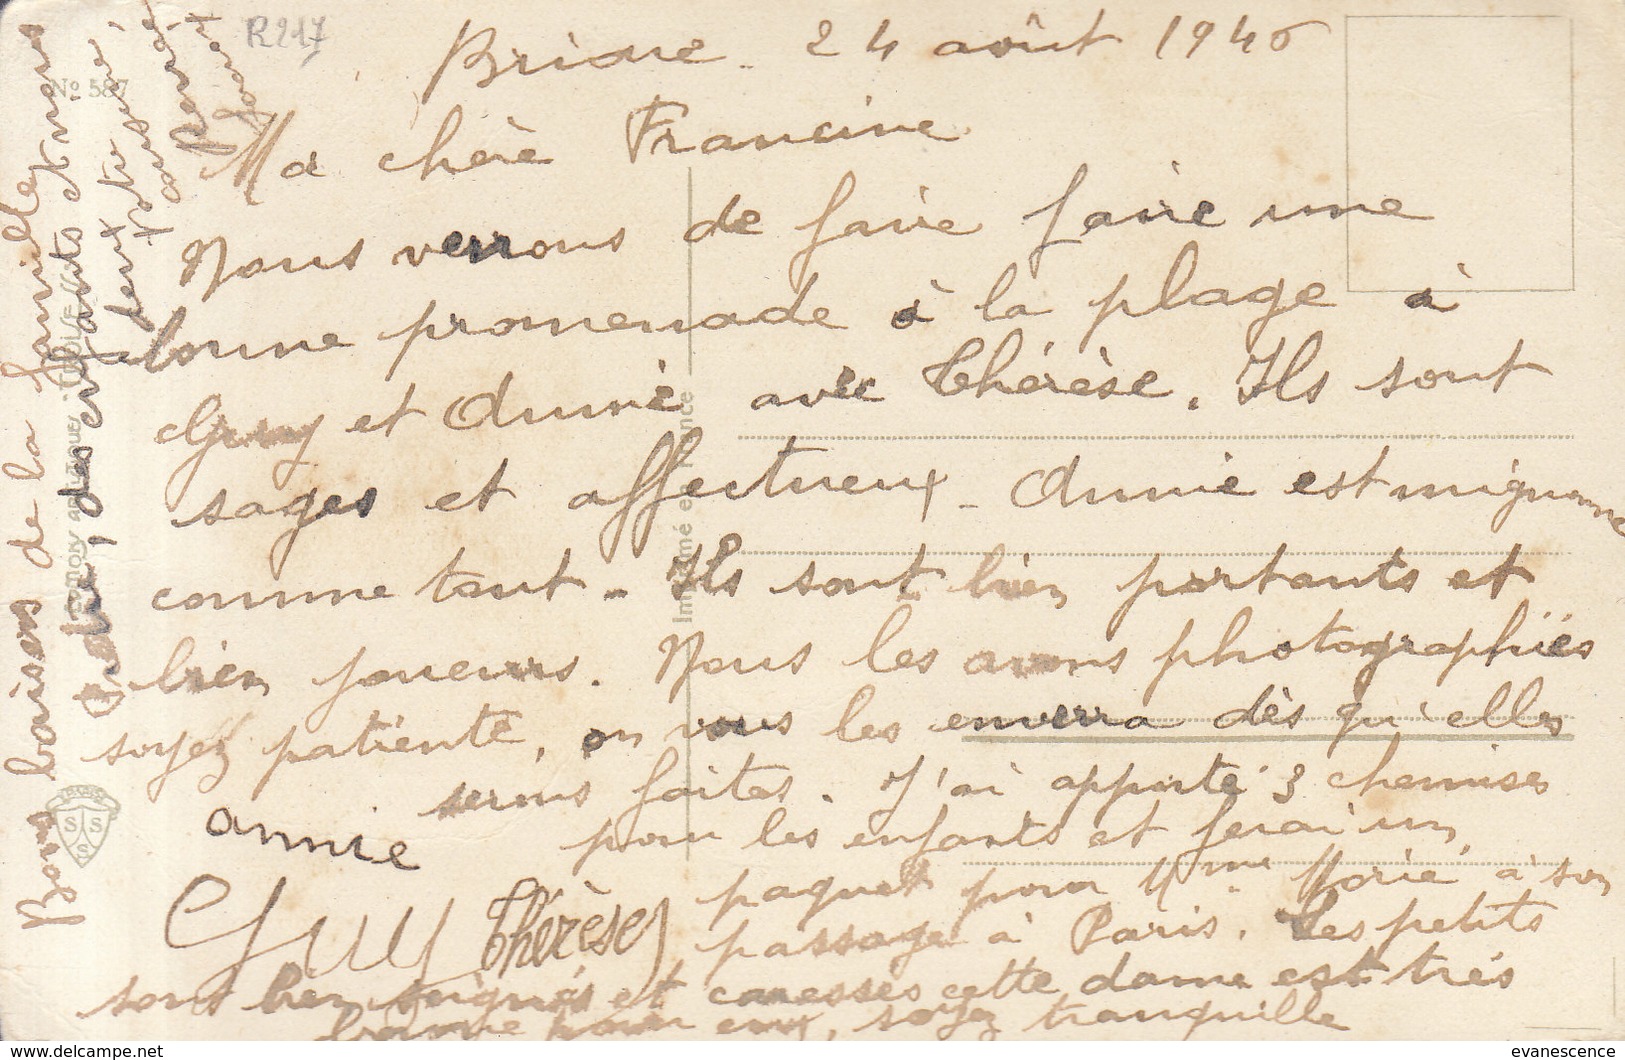 R217
24 août 1946
Ma chère Francine
Nous venons de faire faire une
bonne promenade à la plage à
Guy et Annie avec Thérèse. Ils sont
sages et affectueux - Annie est mignonne
comme tout - Ils sont bien portants et
bien joueurs. Nous les avons photographiés
soyez patiente, on vous les enverra dès qu'elles
serons faites. J'ai apporté 3 chemises
pour les enfants et ferai un
paquet pour Mme à son
passage à Paris. Les petits
sont bien soignés et caressés cette dame est très
bonne pour eux, soyez tranquille
annie
Guy Thérèse
Bons baisers de la famille
des enfants et nous
deux
votre cousine,
cousine
Nº 587
Imprimé en France
evanescence
www.delcampe.net